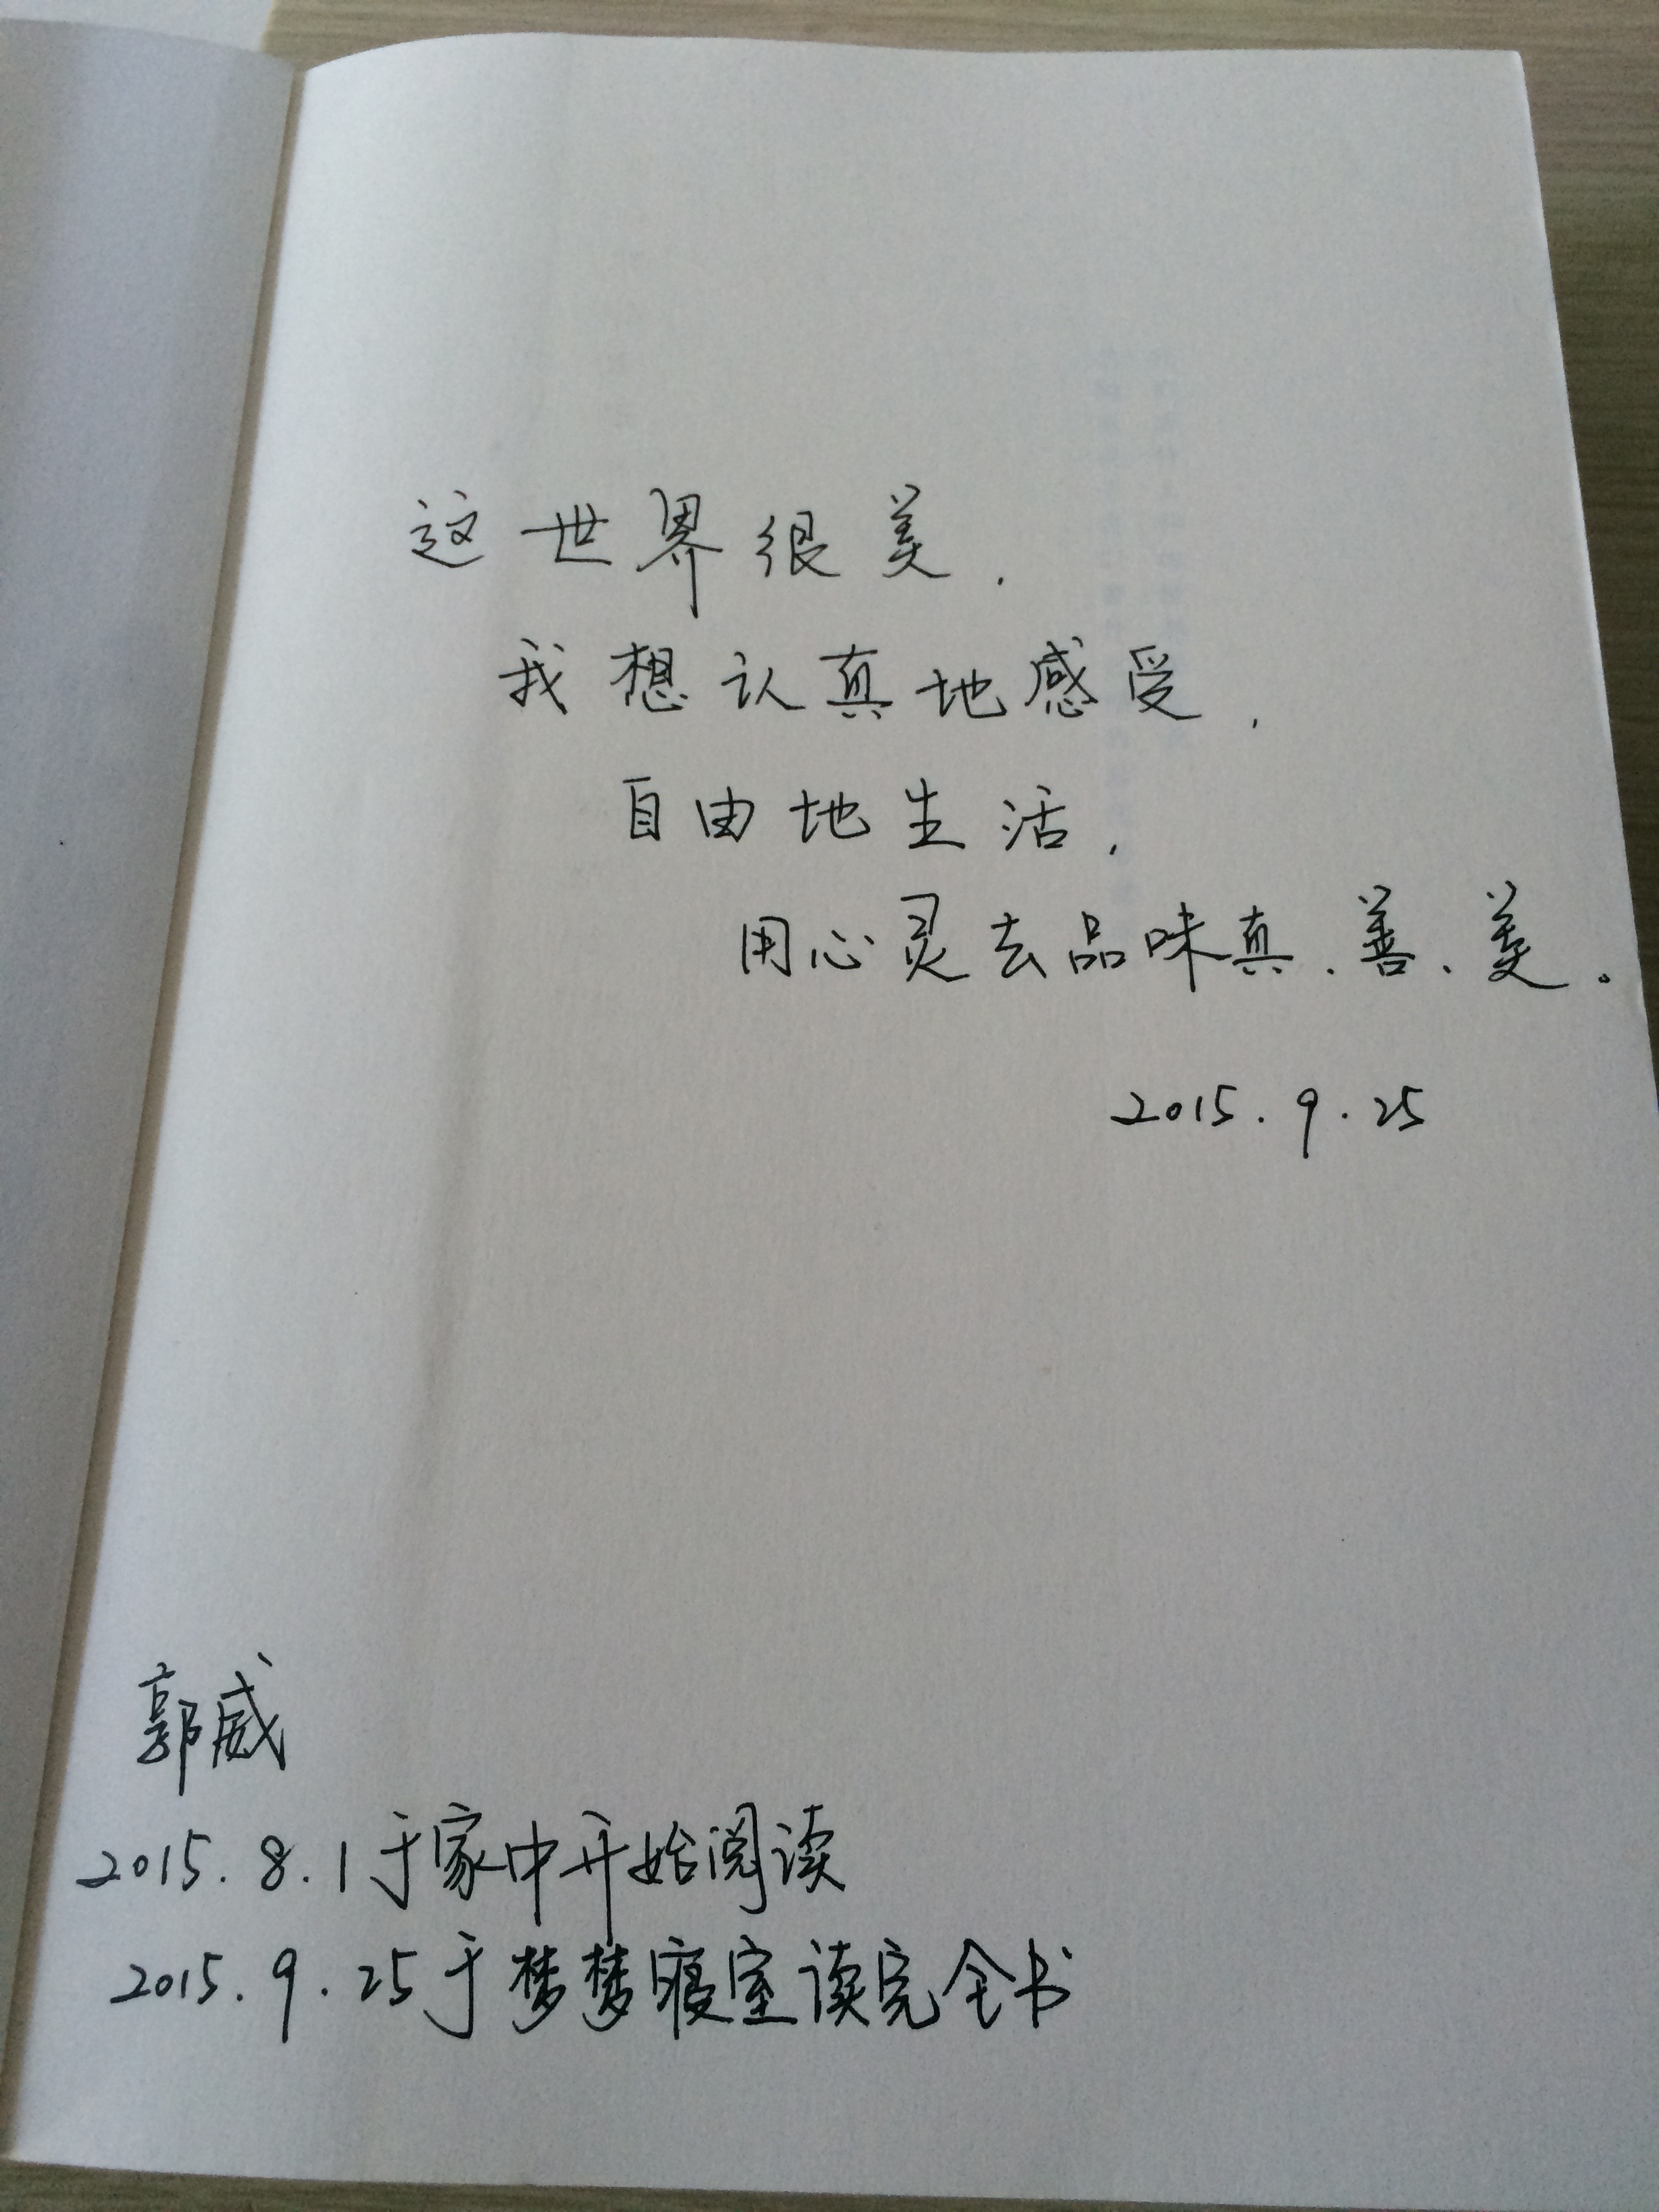 这世界很美，
我想认真地感受，
自由地生活，
用心灵去品味真、善、美。
2015.9.25
郭威
2015.8.1于家中开始阅读
2015.9.25于梦梦寝室读完全书